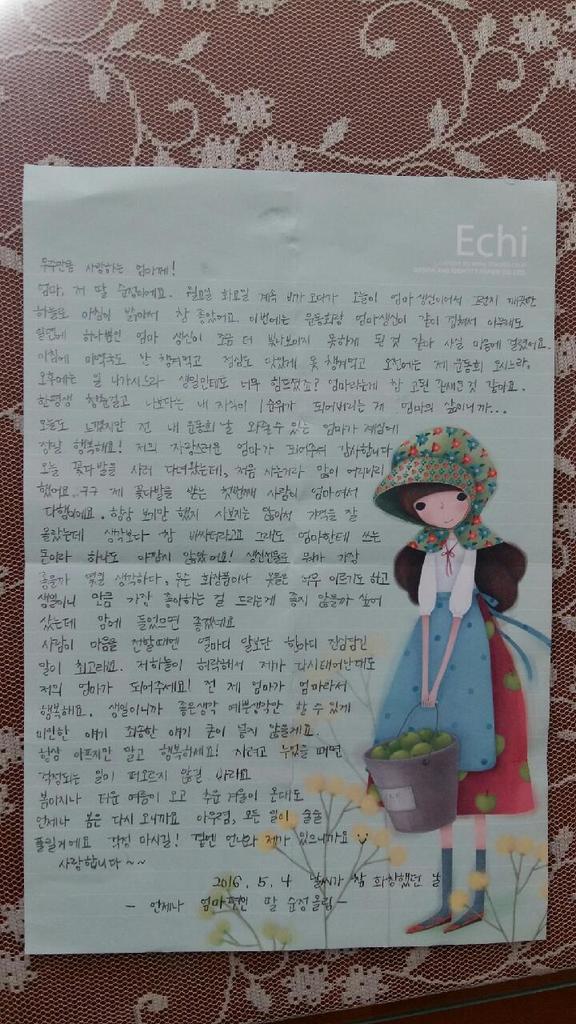 Echi
DESIGN AND IDENTITY
우주만큼 사랑하는 엄마께!
엄마, 저 딸 순정이에요. 월요일 화요일 계속 비가 오다가 오늘이 엄마 생신이어서 그런지 깨끗한
하늘로 아침이 밝아서 참 좋았어요. 이번에는 운동회랑 엄마생신이 같이 겹쳐서 아무래도
일년에 하나뿐인 엄마 생신이 조금 더 빛나보이지 못하게 된 것 같아 사실 마음에 걸렸어요.
아침에 미역국도 난 챙겨먹고 점심도 맛있게 못 챙겨먹고 오전에는 제 운동회 오시느라,
오후에는 일 나가시느라 생일인데도 너무 힘드셨죠? 엄마라는게 참 고된 것 같아요.
한평생 나보다는 내 자식이 1순위가 되어버리는 게 엄마의 삶이니까...
오늘도 느꼈지만 전 내 운동회 날 와줄 수 있는 엄마가 계심에
정말 행복해요! 저의 자랑스러운 엄마가 되어주셔 감사합니다
오늘 꽃다발을 사러 다녀왔는데, 처음 사는거라 많이 어리버리
했어요.. ㅋㅋ 제 꽃다발을 받는 첫번째 사람이 엄마여서
다행이에요. 항상 보기만 했지 사보지는 않아서 가격을 잘
몰랐는데 생각보다 참 비싸더라고요 그래도 엄마한테 쓰는
돈이라 하나도 아깝지 않았어요! 생신선물로 뭐가 가장
좋을까 몇일 생각하다, 옷은 너무 이르기도 하고
생일이니 만큼 가장 좋아하는 걸 드리는게 좋지 않을까 싶어
샀는데 맘에 들었으면 좋겠네요
사람이 마음을 전할때엔 열마디 말보단 한마디 진심담긴
말이 최고래요. 저 하늘이 허락해서 제가 다시 태어난대도
저의 엄마가 되어주세요! 전 제 엄마가 엄마라서
행복해요. 생일이니까 좋은생각 예쁜생각만 할 수 있게
미안한 얘기 죄송한 얘기 굳이 넣지 않을게요.
항상 아프지만 말고 행복하세요! 자려고 누웠을 때면
걱정되는 일이 떠오르지 않길 바라요
봄이지나 더운 여름이 오고 추운 겨울이 온대도
언제나 봄은 다시 오니까요 아무렴, 모든 일이 술술
풀릴거에요 걱정 마시길! 옆엔 언니와 제가 있으니까요
사랑합니다~~
2016. 5. 4 날씨가 참 화창했던 날
- 언제나 엄마편인 딸 순정올림 -